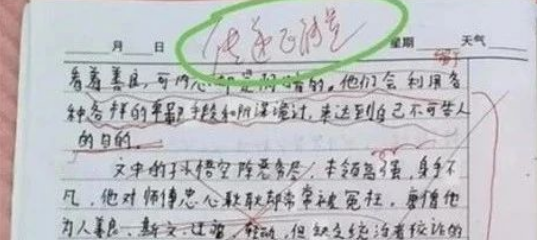 传递正能量
月 日 星期 天气
看着善良，可内心却是阴暗的。他们会利用各
种各样的卑鄙手段和阴谋诡计，来达到自己不可告人
的目的。
文中的孙悟空除恶务尽，本领高强，身手不
凡，他对师傅忠心耿耿却常常被冤枉，唐僧他
为人善良、斯文、迂腐，但缺乏统治者狡诈的